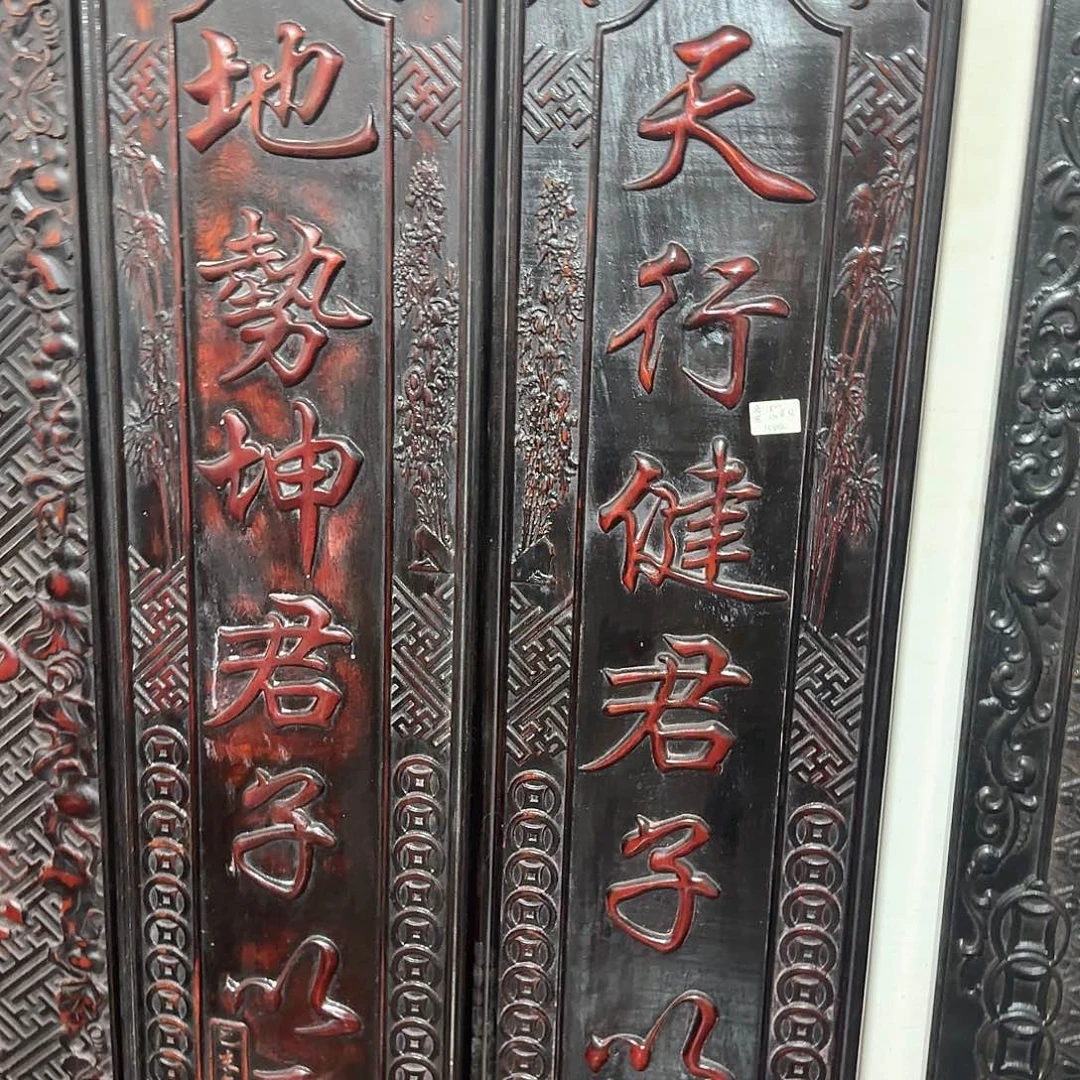 天行健君子以
地勢坤君子以